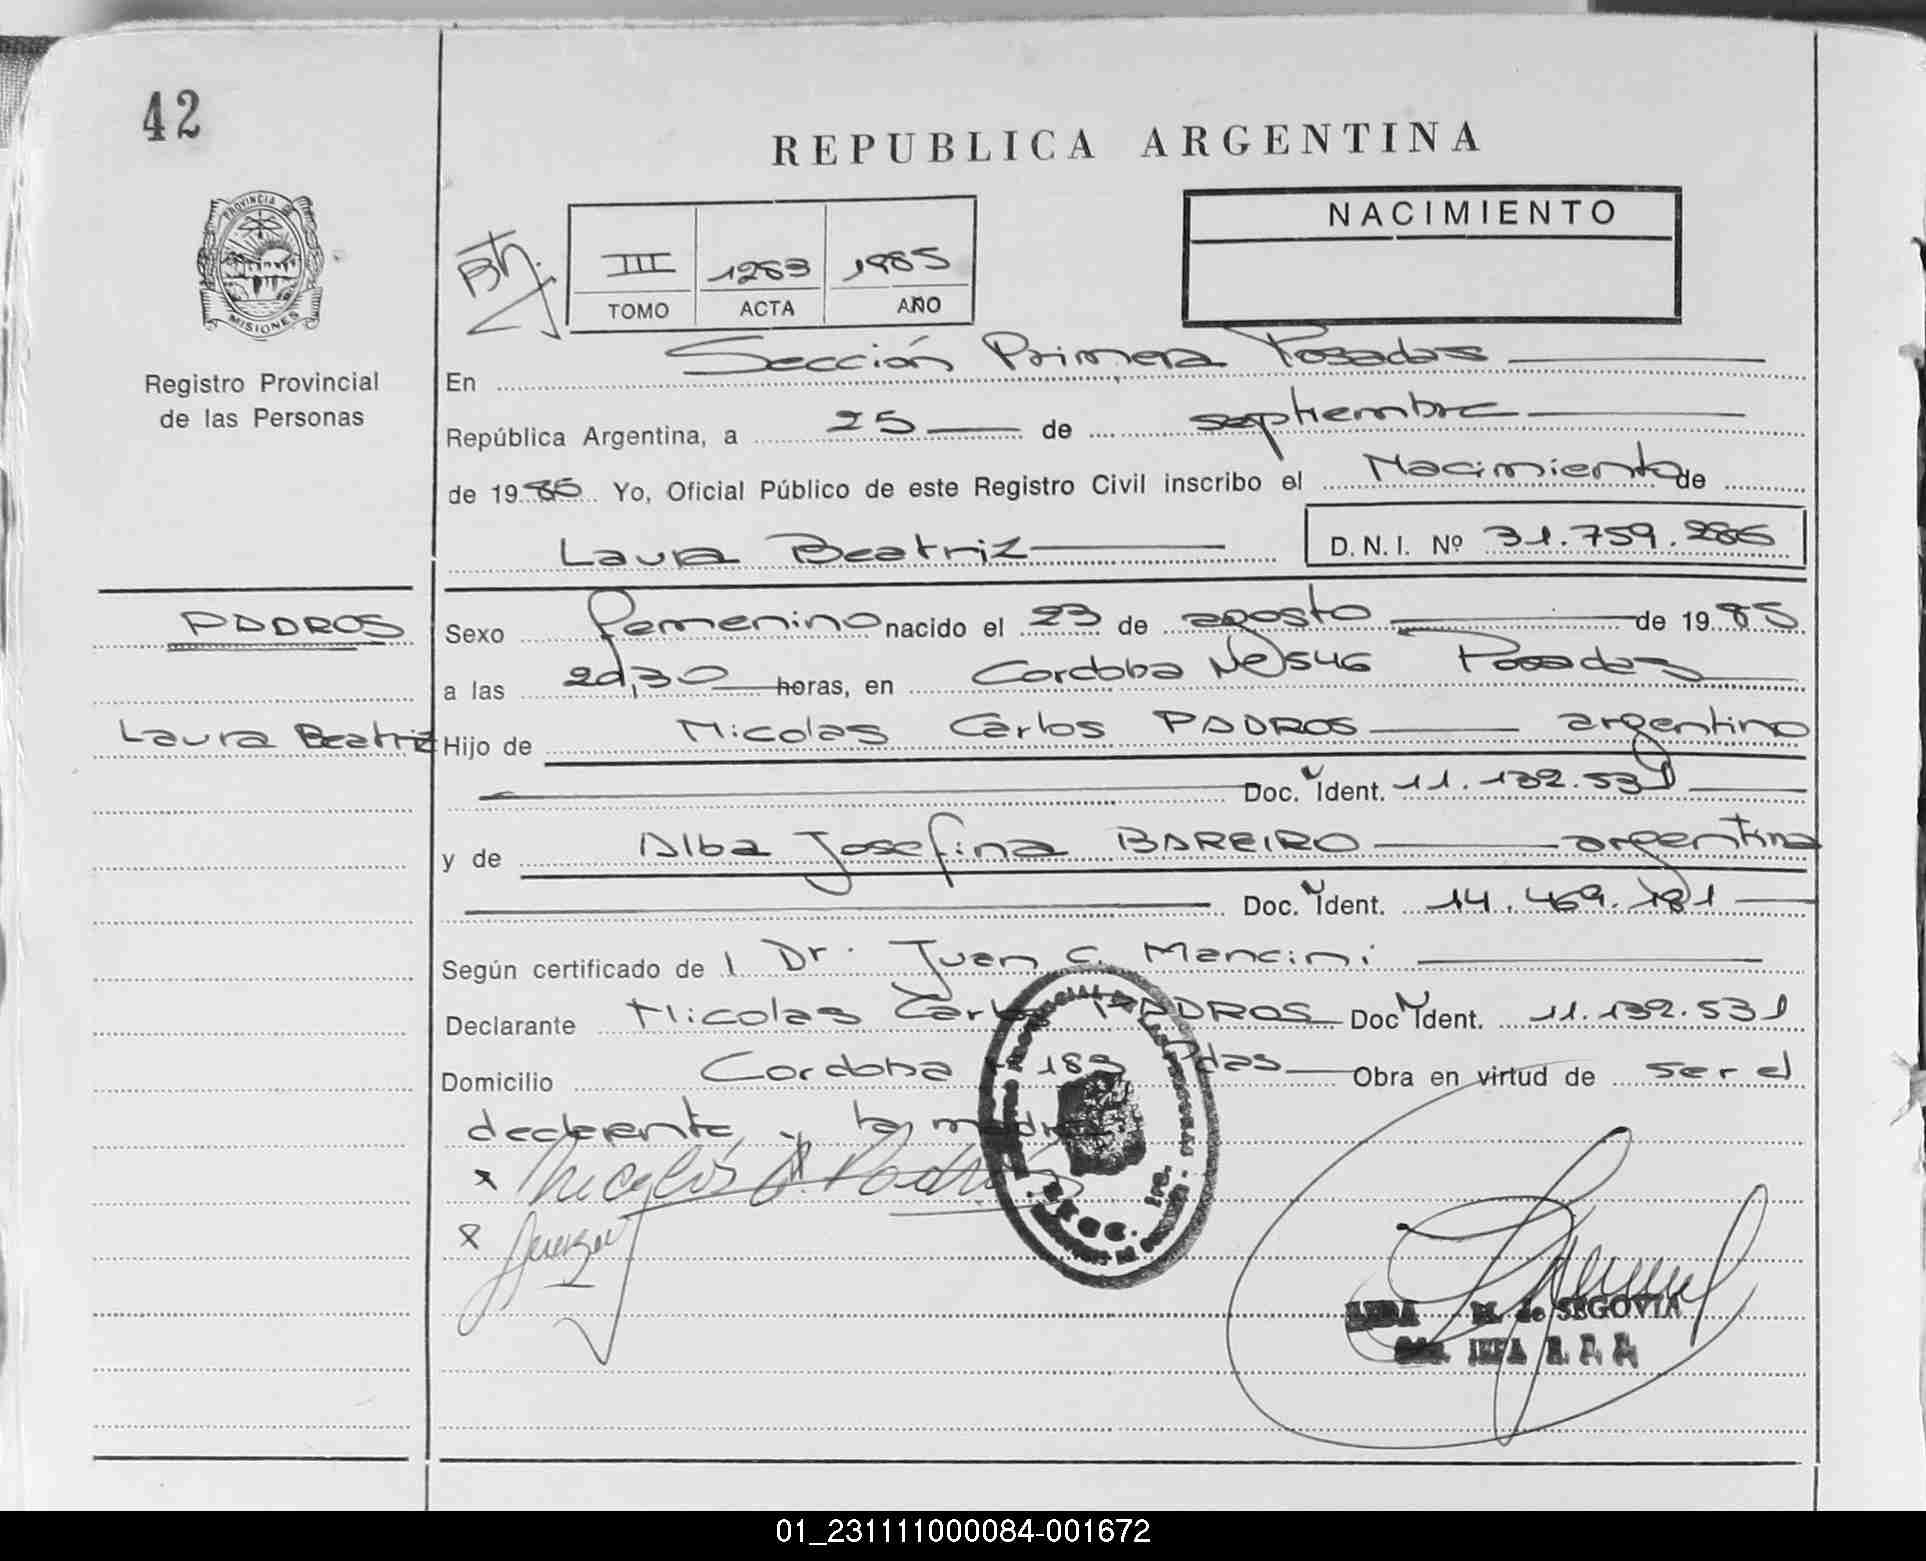 42
REPUBLICA ARGENTINA
PROVINCIA DE
MISIONES
Registro Provincial
de las Personas
III 1283 1985
TOMO ACTA AÑO
NACIMIENTO
En Sección Primera Posadas
República Argentina, a 25 de septiembre
de 1985 Yo, Oficial Público de este Registro Civil inscribo el Nacimiento de
Laura Beatriz D.N.I. Nº 31.759.286
PADROS
Sexo femenino nacido el 23 de agosto de 1985
a las 20,30 horas, en Cordoba Nº 1546 Posadas
Laura Beatriz
Hijo de Nicolas Carlos PADROS argentino
Doc. Ident. 11.132.531
y de Alba Josefina BAREIRO argentina
Doc. Ident. 14.469.181
Según certificado de l Dr. Juan C. Mancini
Declarante Nicolas Carlos PADROS Doc Ident. 11.132.531
Domicilio Cordoba 183 Pdas Obra en virtud de ser el
declarante y la madre
x Nicolás C. Padrós
x
M. de SEGOVIA
JEFA R. P. P.
01_231111000084-001672